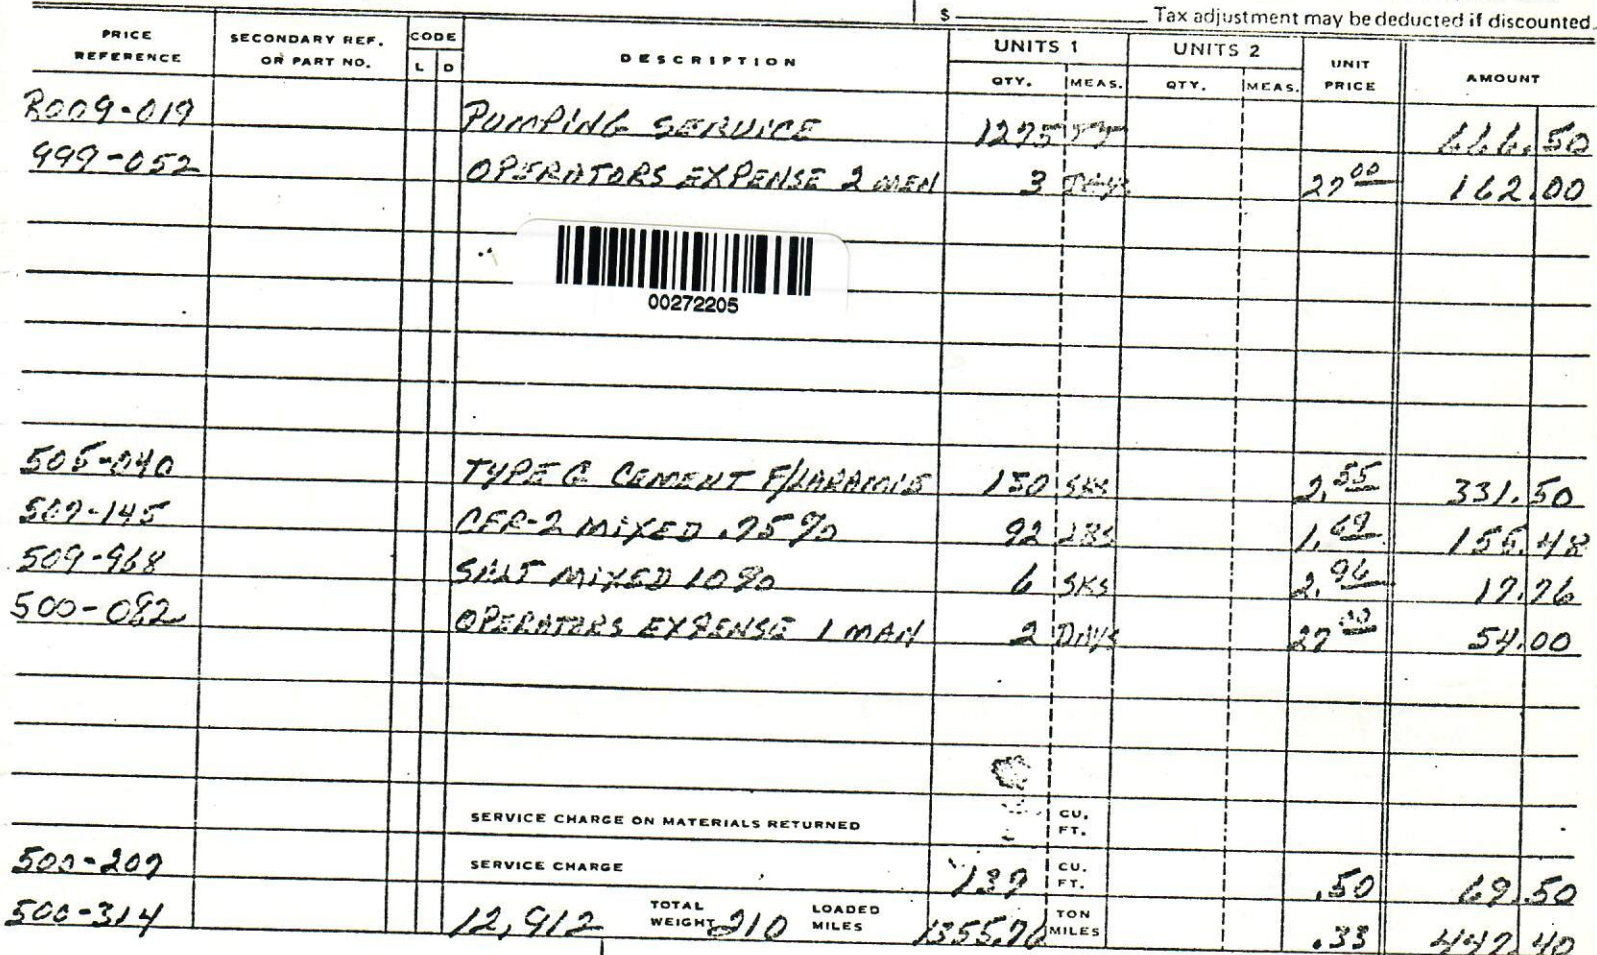 $ Tax adjustment may be deducted if discounted.
PRICE REFERENCE SECONDARY REF. OR PART NO. CODE L D DESCRIPTION UNITS 1 QTY. MEAS. UNITS 2 QTY. MEAS. UNIT PRICE AMOUNT
R009-019 PUMPING SERVICE 1275 666.50
999-052 OPERATORS EXPENSE 2 MEN 3 DAYS 27 00 162.00
00272205
505-040 TYPE G CEMENT F/LARAMIE 130 SKS 2.55 331.50
507-145 CFR-2 MIXED .75% 92 LBS 1.69 155.48
509-968 SALT MIXED 10% 6 SKS 2.96 17.76
500-082 OPERATORS EXPENSE 1 MAN 2 DAYS 27 00 54.00
SERVICE CHARGE ON MATERIALS RETURNED CU. FT.
500-207 SERVICE CHARGE 139 CU. FT. .50 69.50
500-314 12,912 TOTAL WEIGHT 210 LOADED MILES 1355.76 TON MILES .33 447.40